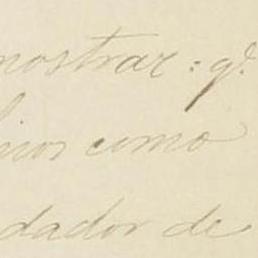 mostrar: q.^e
licos como
dador de